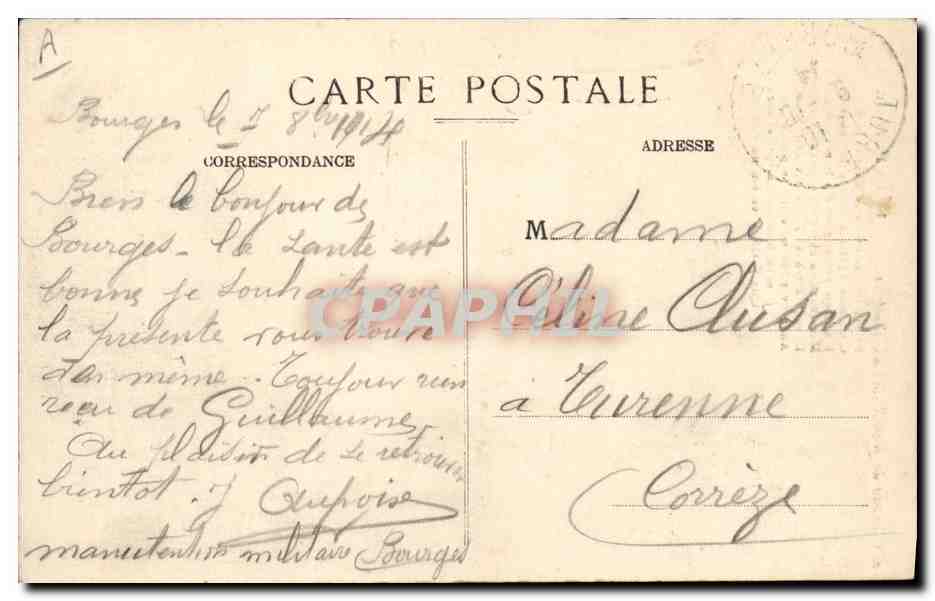 A
CARTE POSTALE
Bourges le 7 8bre 1914
CORRESPONDANCE
ADRESSE
Biens le bonjour de
Bourges - la santé est
bonne je souhaite que
la présente vous trouve
de même. Toujour rien
reçu de Guillaume.
Au plaisir de se retrouver
bientot. J Aupoise
manutention militaire Bourges
Madame
Céline Clusan
à Turenne
Corrèze
CPAPHIL